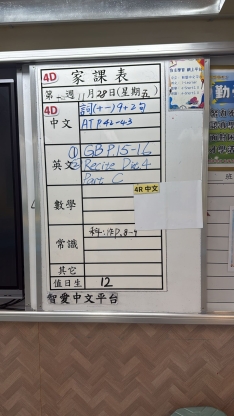 4D 家課表
第十二週11月28日(星期五)
4D
中文 詞(十一)9+2句
AT P42-43
英文 ① GB P.15-16
② Recite Dic.4
Part C
4R 中文
數學
常識 科:作P.8-9
其它
值日生 12
智愛中文平台